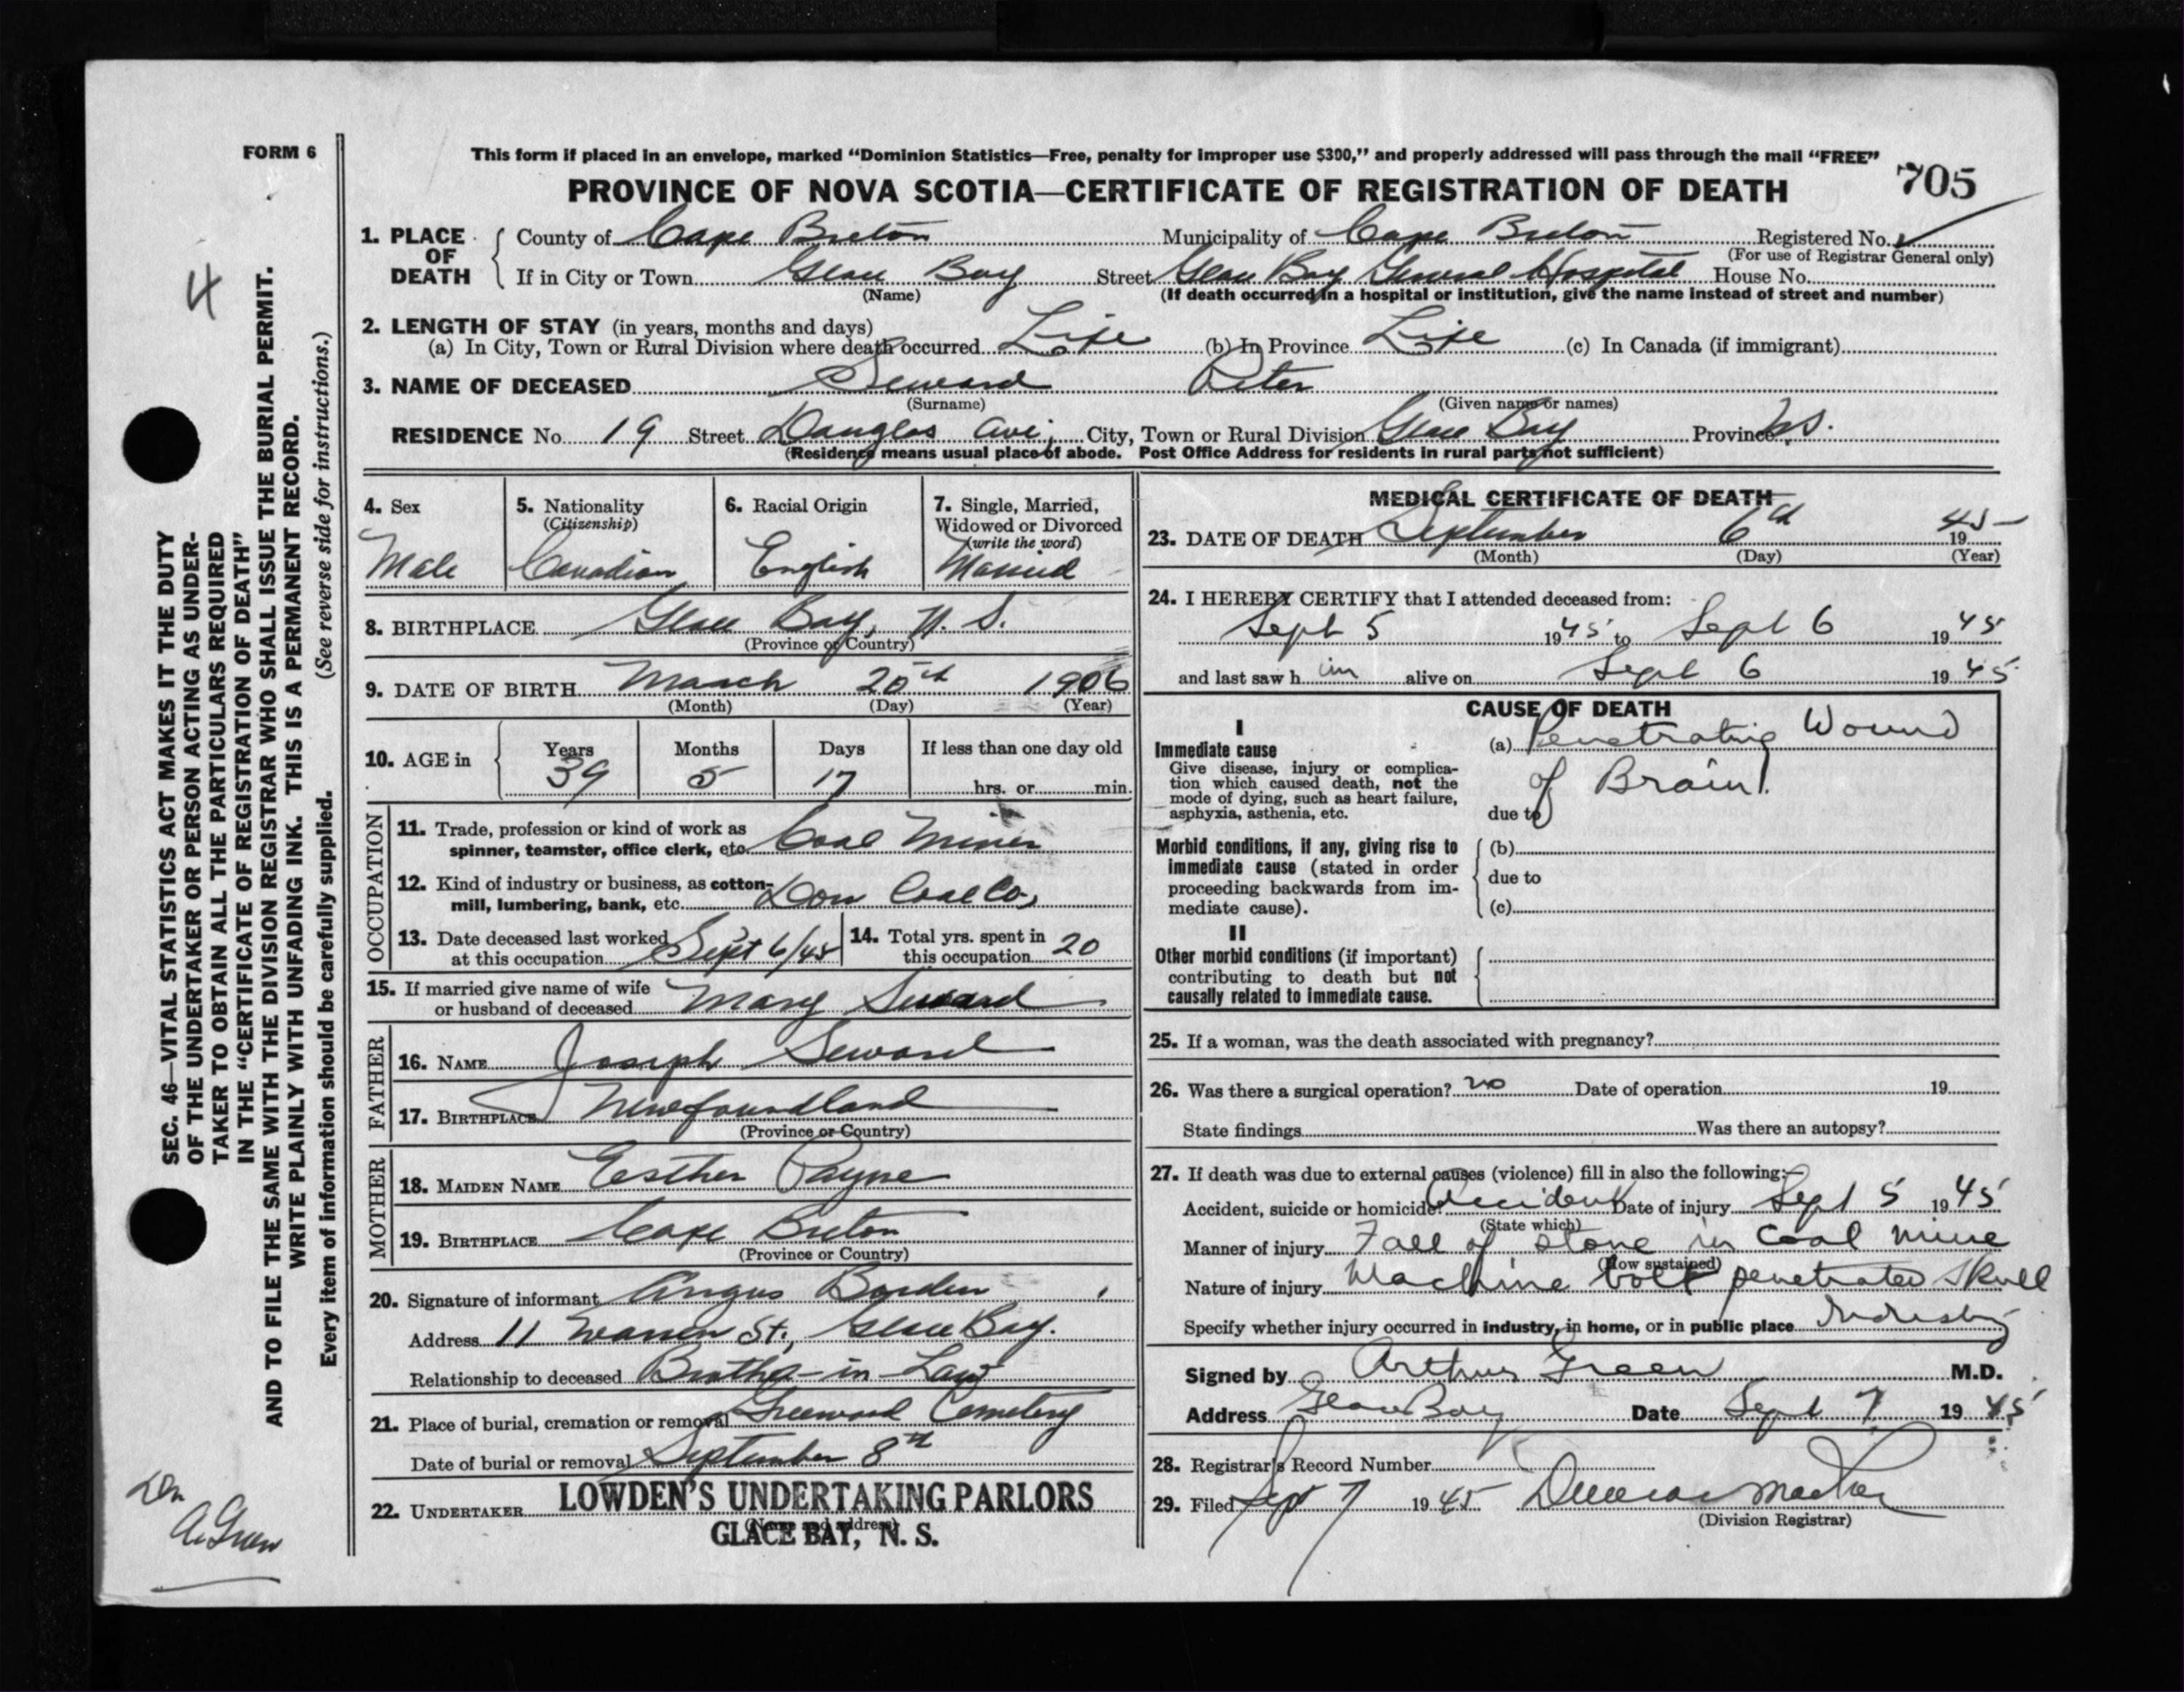 FORM 6
This form if placed in an envelope, marked “Dominion Statistics—Free, penalty for improper use $300,” and properly addressed will pass through the mail “FREE”
705
PROVINCE OF NOVA SCOTIA—CERTIFICATE OF REGISTRATION OF DEATH
1. PLACE OF DEATH
County of Cape Breton Municipality of Cape Breton Registered No.
(For use of Registrar General only)
If in City or Town Glace Bay Street Glace Bay General Hospital House No.
(Name) (If death occurred in a hospital or institution, give the name instead of street and number)
2. LENGTH OF STAY (in years, months and days)
(a) In City, Town or Rural Division where death occurred Life (b) In Province Life (c) In Canada (if immigrant)
3. NAME OF DECEASED Seward Peter
(Surname) (Given name or names)
RESIDENCE No. 19 Street Douglas Ave, City, Town or Rural Division Glace Bay Province N.S.
(Residence means usual place of abode. Post Office Address for residents in rural parts not sufficient)
4. Sex
Male
5. Nationality
(Citizenship)
Canadian
6. Racial Origin
English
7. Single, Married,
Widowed or Divorced
(write the word)
Married
8. BIRTHPLACE Glace Bay, N. S.
(Province or Country)
9. DATE OF BIRTH March 20th 1906
(Month) (Day) (Year)
10. AGE in Years Months Days If less than one day old
39 5 17 hrs. or min.
OCCUPATION
11. Trade, profession or kind of work as
spinner, teamster, office clerk, etc. Coal Miner
12. Kind of industry or business, as cotton-
mill, lumbering, bank, etc. Dom Coal Co,
13. Date deceased last worked
at this occupation Sept 6/45
14. Total yrs. spent in
this occupation 20
15. If married give name of wife
or husband of deceased Mary Seward
FATHER
16. NAME Joseph Seward
17. BIRTHPLACE Newfoundland
(Province or Country)
MOTHER
18. MAIDEN NAME Esther Payne
19. BIRTHPLACE Cape Breton
(Province or Country)
20. Signature of informant Angus Borden
Address 11 Warren St., Glace Bay.
Relationship to deceased Brother-in-Law
21. Place of burial, cremation or removal Greenwood Cemetery
Date of burial or removal September 8th
22. UNDERTAKER LOWDEN'S UNDERTAKING PARLORS
(Name and address)
GLACE BAY, N. S.
MEDICAL CERTIFICATE OF DEATH
23. DATE OF DEATH September 6th 1945
(Month) (Day) (Year)
24. I HEREBY CERTIFY that I attended deceased from:
Sept 5 1945 to Sept 6 1945
and last saw him alive on Sept 6 1945
CAUSE OF DEATH
I
Immediate cause
Give disease, injury or complica-
tion which caused death, not the
mode of dying, such as heart failure,
asphyxia, asthenia, etc.
(a) Penetrating Wound
of Brain
due to
Morbid conditions, if any, giving rise to
immediate cause (stated in order
proceeding backwards from im-
mediate cause).
(b)
due to
(c)
II
Other morbid conditions (if important)
contributing to death but not
causally related to immediate cause.
25. If a woman, was the death associated with pregnancy?
26. Was there a surgical operation? no Date of operation 19
State findings Was there an autopsy?
27. If death was due to external causes (violence) fill in also the following:—
Accident, suicide or homicide? Accident Date of injury Sept 5 1945
(State which)
Manner of injury Fall of stone in coal mine
(How sustained)
Nature of injury Machine bolt penetrated skull
Specify whether injury occurred in industry, in home, or in public place Industry
Signed by Arthur Green M.D.
Address Glace Bay Date Sept 7 1945
28. Registrar's Record Number
29. Filed Sept 7 1945 Duncan
(Division Registrar)
4
SEC. 46—VITAL STATISTICS ACT MAKES IT THE DUTY
OF THE UNDERTAKER OR PERSON ACTING AS UNDER-
TAKER TO OBTAIN ALL THE PARTICULARS REQUIRED
IN THE “CERTIFICATE OF REGISTRATION OF DEATH”
AND TO FILE THE SAME WITH THE DIVISION REGISTRAR WHO SHALL ISSUE THE BURIAL PERMIT.
WRITE PLAINLY WITH UNFADING INK. THIS IS A PERMANENT RECORD.
Every item of information should be carefully supplied. (See reverse side for instructions.)
Dr
A. Green